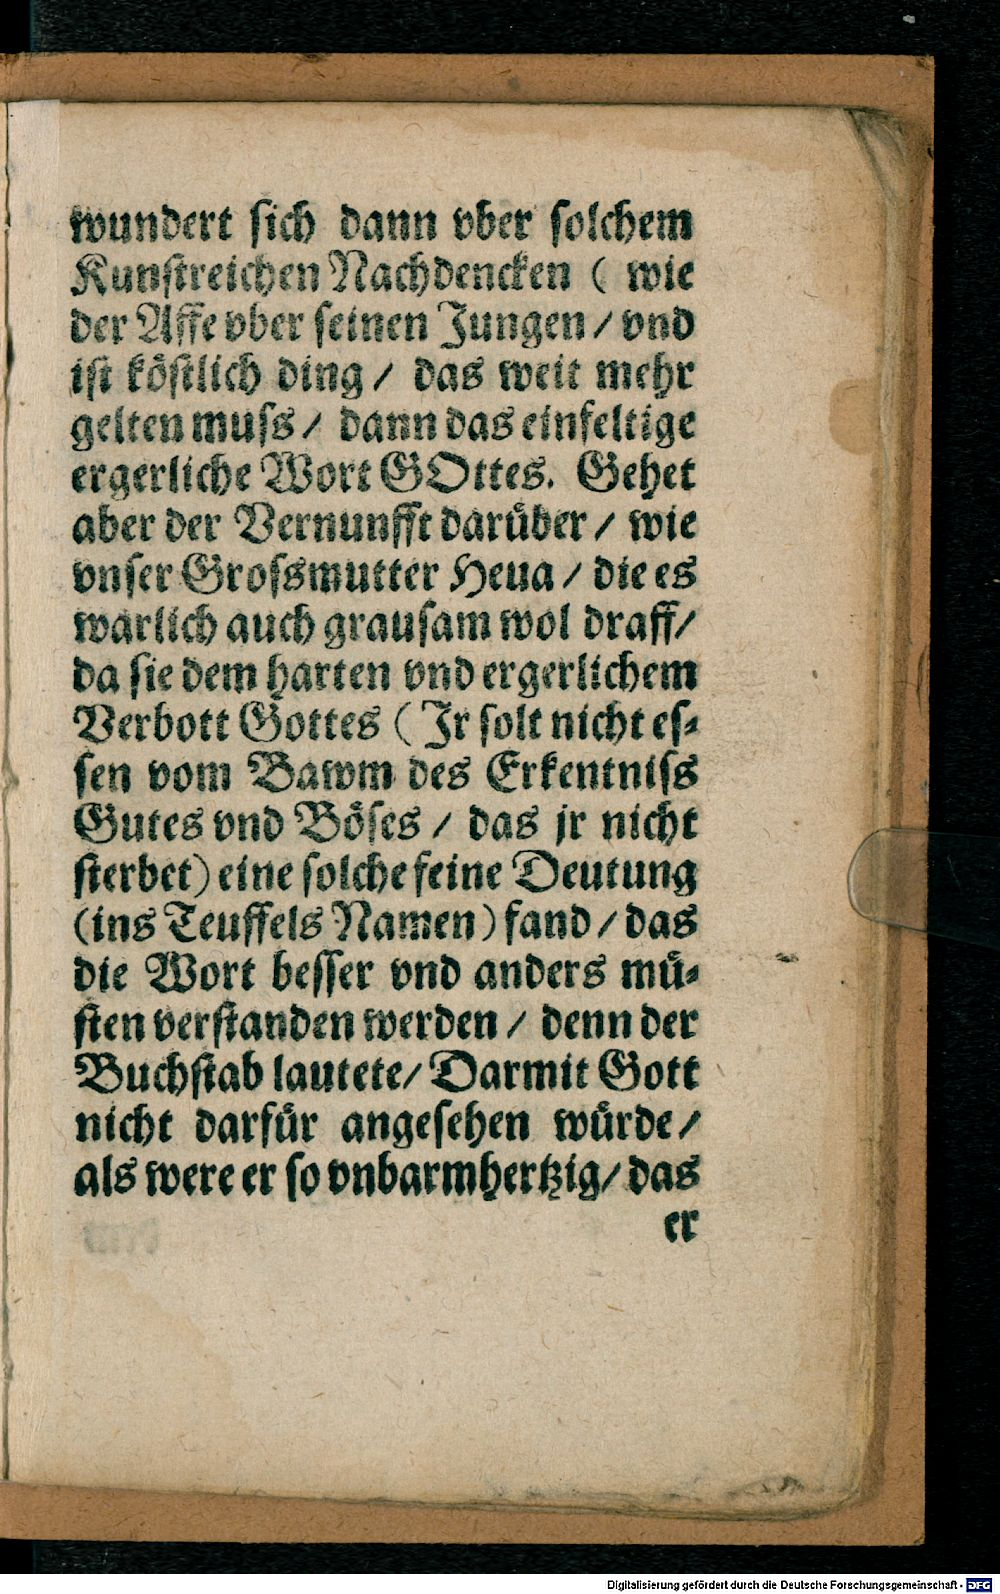 wundert sich dann vber solchem
Kunstreichen Nachdencken ( wie
der Affe vber seinen Jungen / vnd
ist köstlich ding / das weit mehr
gelten muss / dann das einfeltige
ergerliche Wort GOttes. Gehet
aber der Vernunfft darüber / wie
vnser Grossmutter Heua / die es
warlich auch grausam wol draff /
da sie dem harten vnd ergerlichem
Verbott Gottes ( Jr solt nicht es-
sen vom Bawm des Erkentniss
Gutes vnd Böses / das jr nicht
sterbet) eine solche feine Deutung
(ins Teuffels Namen) fand / das
die Wort besser vnd anders mü-
sten verstanden werden / denn der
Buchstab lautete / Darmit Gott
nicht darfür angesehen würde /
als were er so vnbarmhertzig / das
er
Digitalisierung gefördert durch die Deutsche Forschungsgemeinschaft - DFG